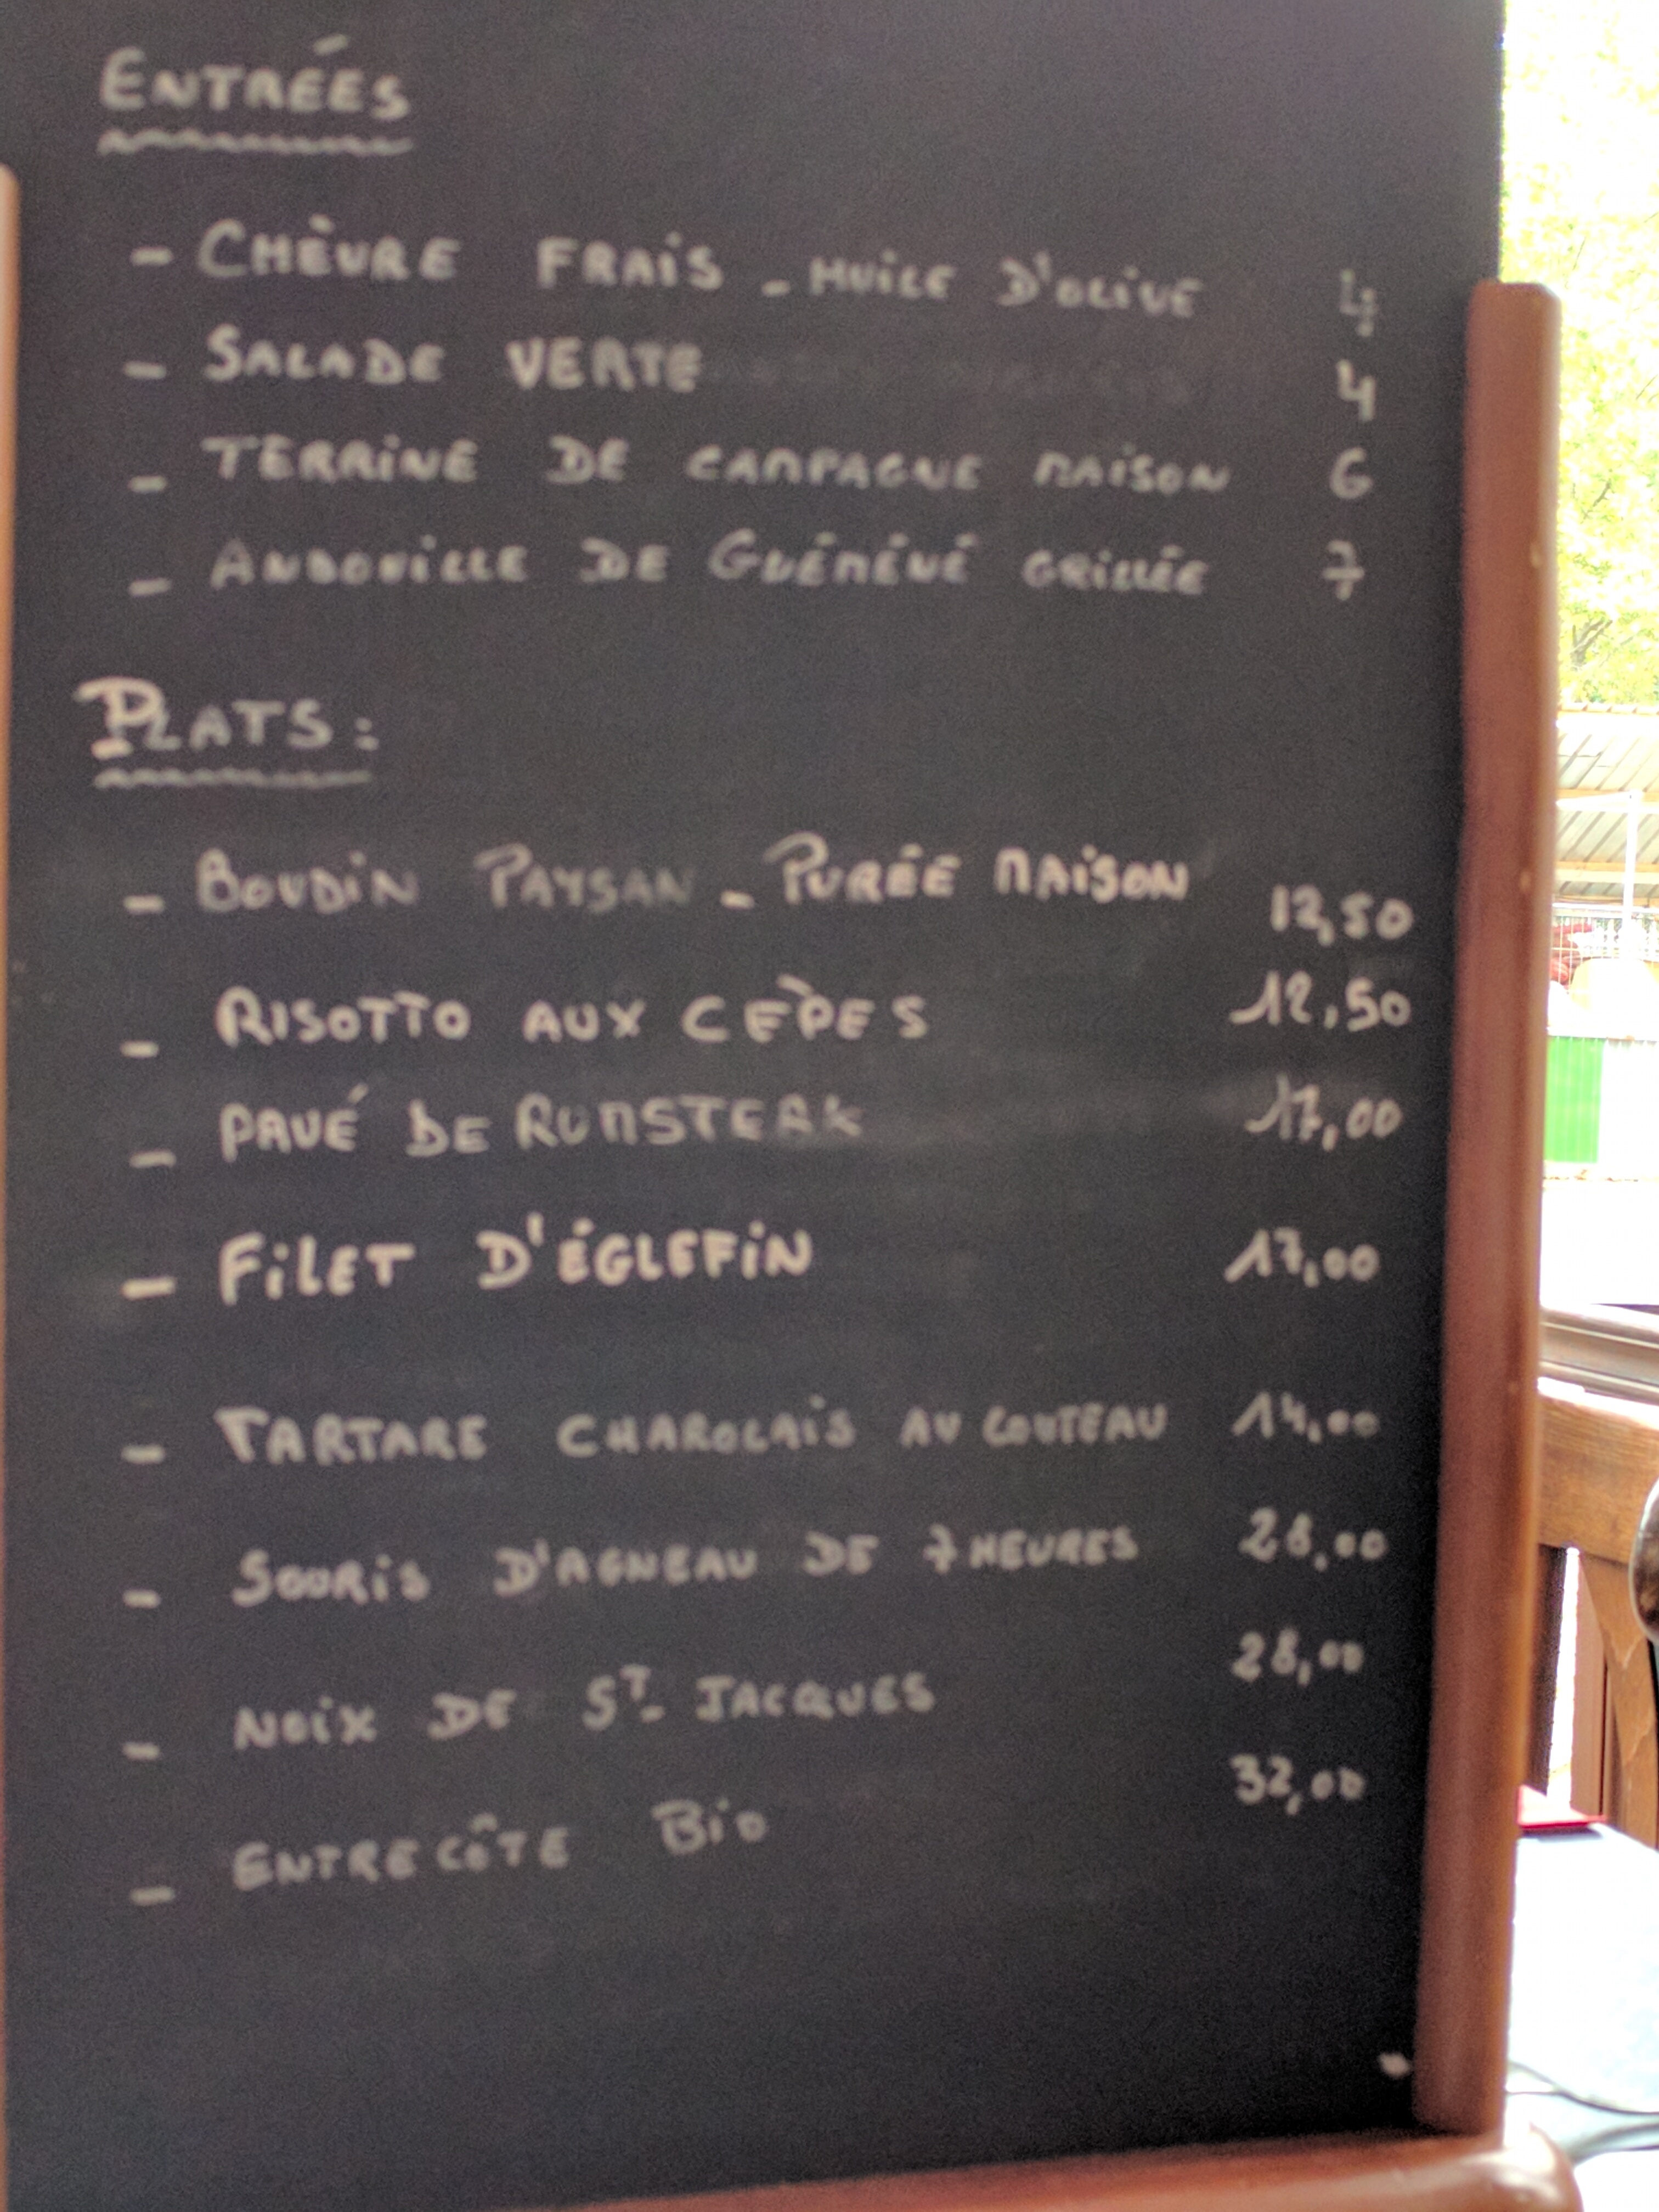 ENTRÉES
- CHÈVRE FRAIS - HUILE D'OLIVE 4
- SALADE VERTE 4
- TERRINE DE CAMPAGNE MAISON 6
- ANDOUILLE DE GUÉMÉNÉ GRILLÉE 7
PLATS:
- BOUDIN PAYSAN - PURÉE MAISON 12,50
- RISOTTO AUX CÈPES 12,50
- PAVÉ DE RUMSTEAK 17,00
- FILET D'ÉGLEFIN 17,00
- TARTARE CHAROLAIS AU COUTEAU 14,00
- SOURIS D'AGNEAU DE 7 HEURES 28,00
- NOIX DE ST- JACQUES 28,00
- ENTRECÔTE BIO 32,00